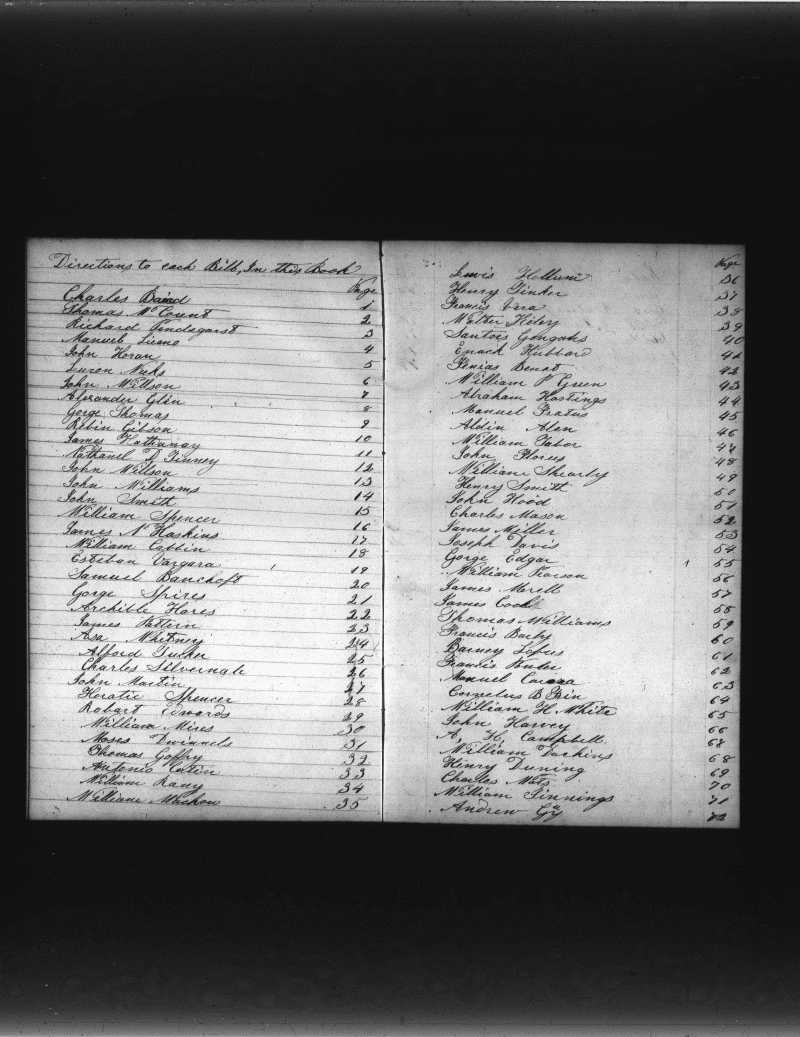 Directions to each Bill, In this Book
Page
Charles Baird 1
Thomas McCount 2
Richard Pendegarst 3
Manuel 4
John Horan 5
6
John Willson 7
Alexander Glin 8
Gorge Thomas 9
Robin Gibson 10
James Hathaway 11
Nathanel D. Tinney 12
John Willson 13
John Williams 14
John Smith 15
William Spencer 16
James N Haskins 17
William Cattin 18
Esteban Vargara 19
Samuel Bancroft 20
Gorge Spires 21
Archible Hares 22
James Pattern 23
Asa Whitney 24
Alford Tucker 25
Charles Silvernale 26
John Martin 27
Horatic Spencer 28
Robart Edwards 29
William Mires 30
Moses Dwinnels 31
Thomas Goffry 32
Antonio Catin 33
William Rany 34
William Machon 35
Page
Lewis Hollum 36
Henry Tinker 37
Francis Vera 38
Walter Hiley 39
Santoes Gongales 40
Enoch Hubbard 41
Benet 42
William P Green 43
Abraham Hastings 44
Manuel Pratus 45
Aldin Alen 46
William Tabor 47
John Florus 48
William Shearly 49
Henry Smith 50
John Hood 51
Charles Mason 52
James Miller 53
Joseph Davis 54
Gorge Edgar 55
William Pearson 56
James Merell 57
James Cook 58
Thomas Williams 59
Francis Barly 60
Barney Lofus 61
Francis 62
Manuel 63
Cornelus B 64
William H. White 65
John Harvey 66
A, H, Campbell 67
William Larkins 68
Henry Duning 69
Charles 70
William Jinnings 71
Andrew Gay 72